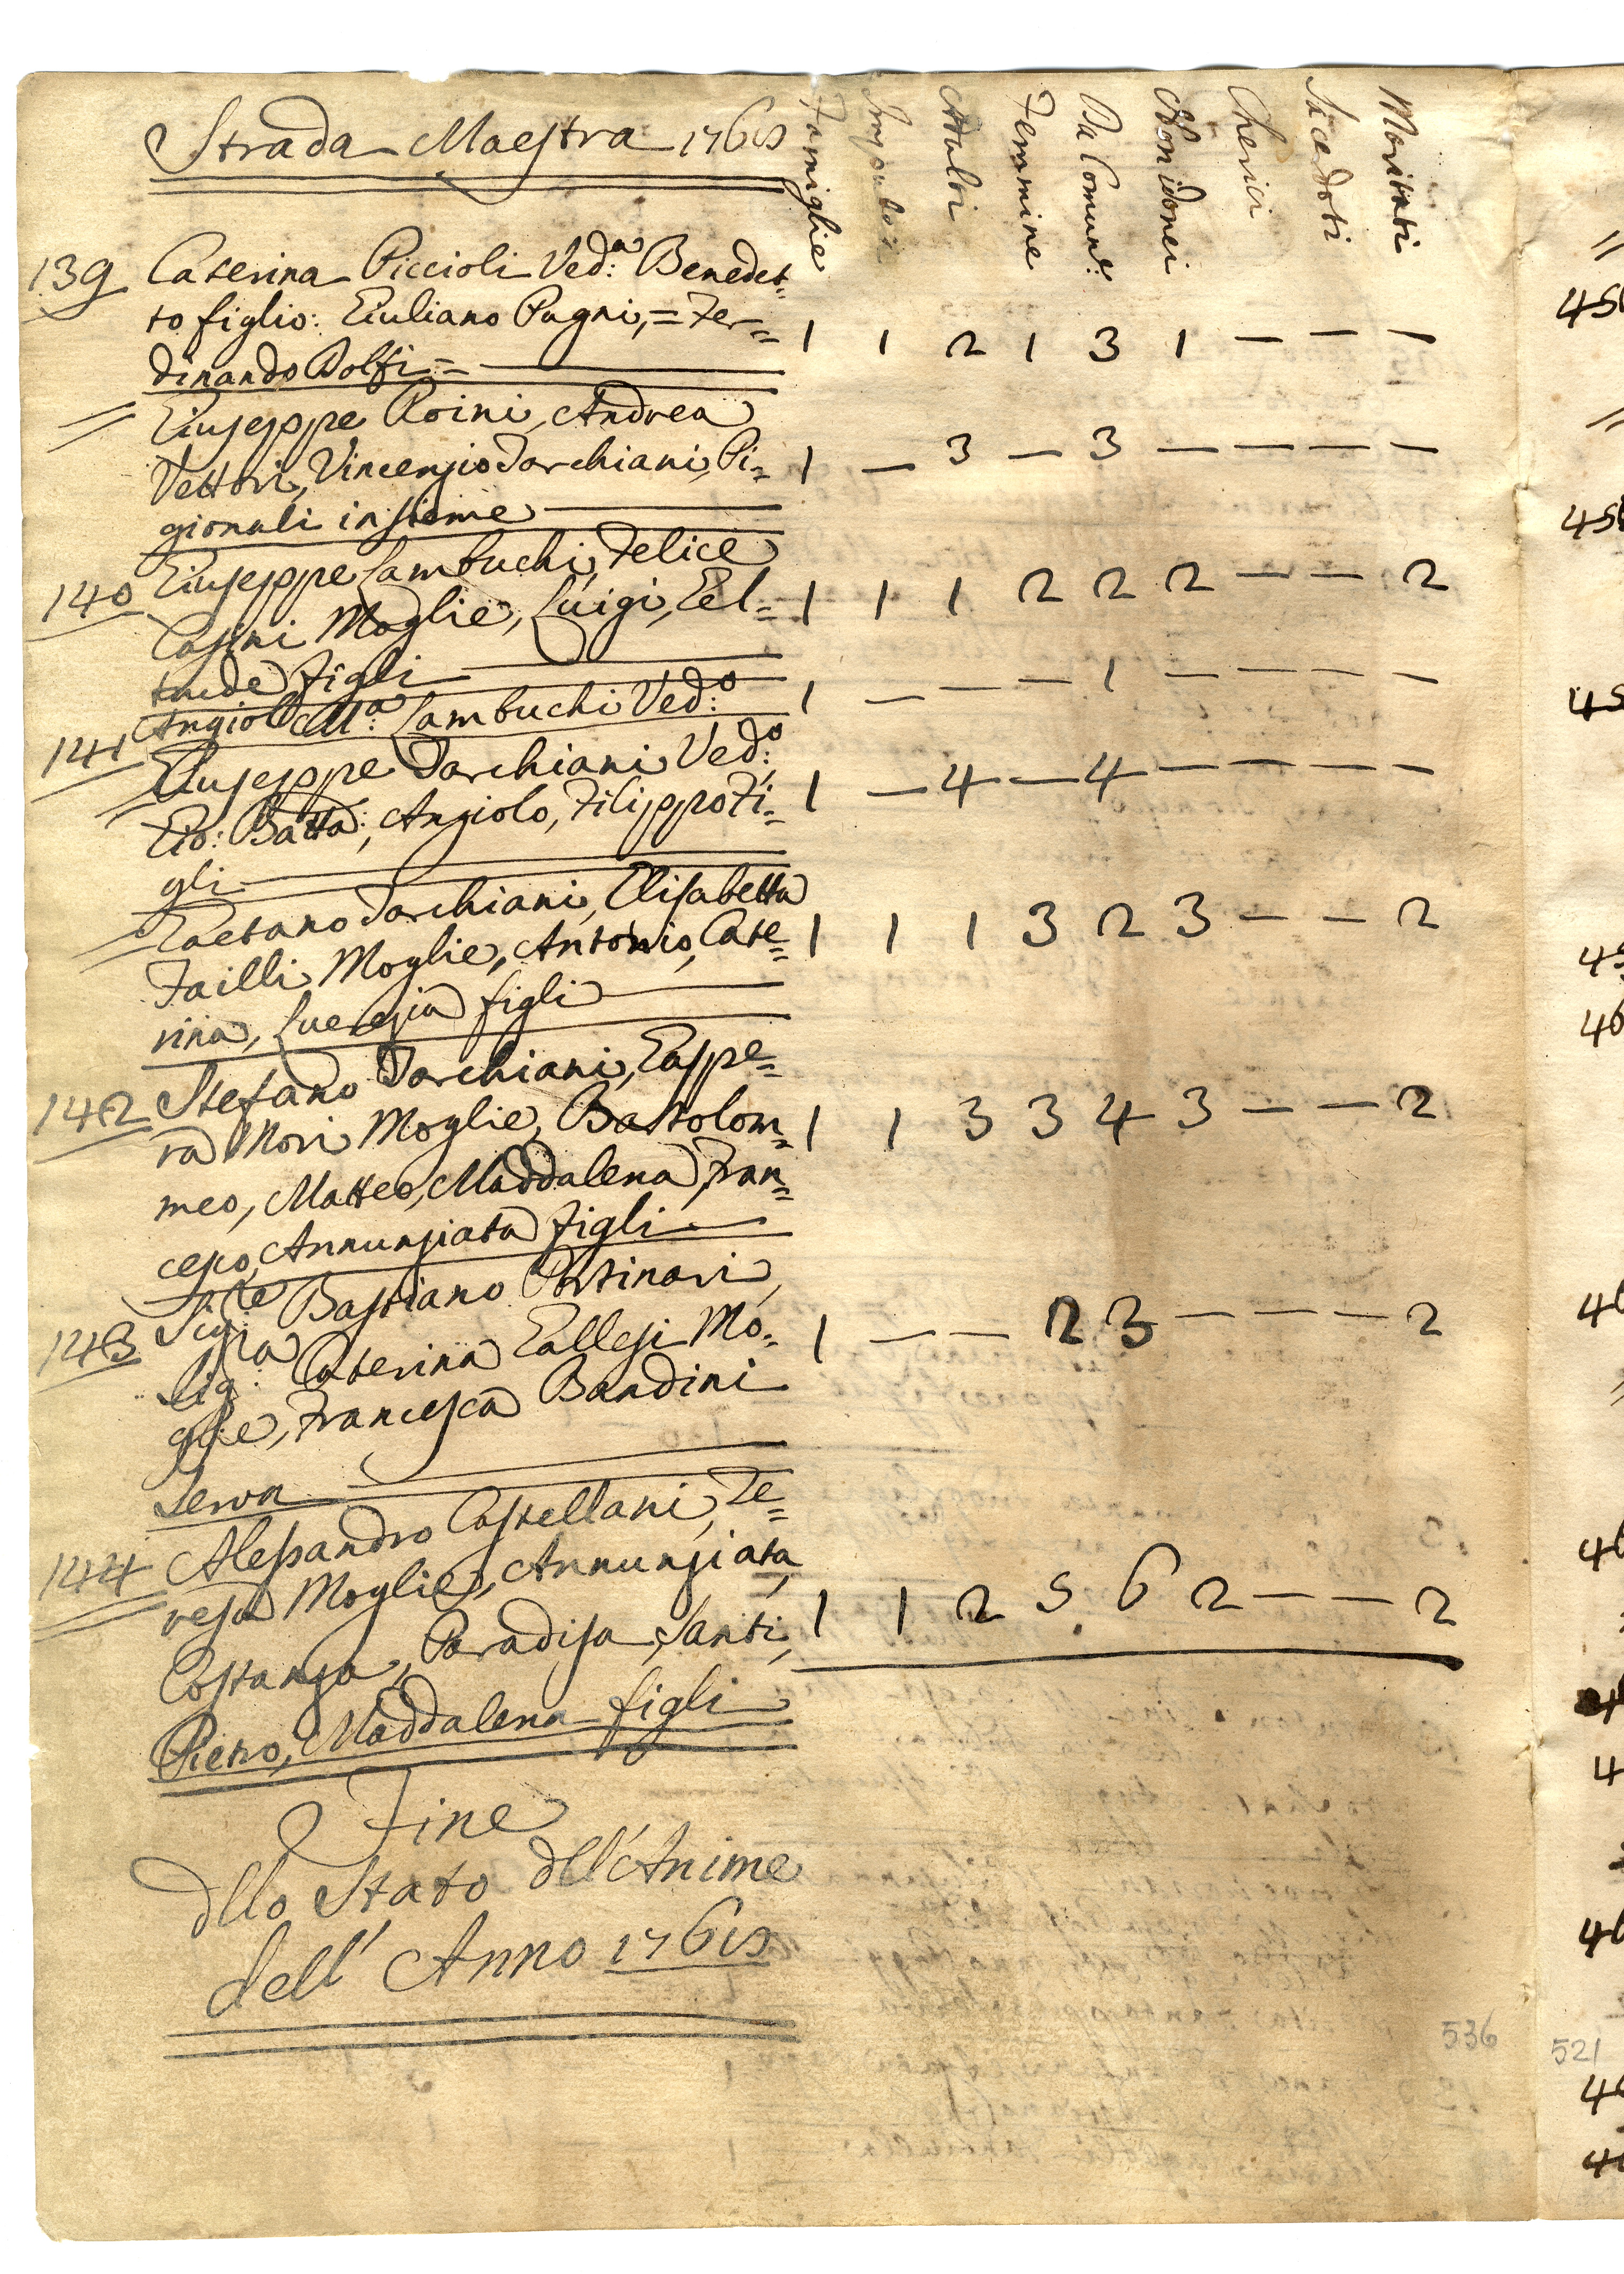 Strada Maestra 1765
Famiglie Impuberi Adulti Femmine Da Comune: Non idonei Cherici Sacerdoti Maritati
139 Caterina Piccioli Ved:a Benedet=
to figlio: Giuliano Pagni, = Fer=
dinando Dolfi = 1 1 2 1 3 1 — — —
Giuseppe Roini, Andrea
Vettori, Vincenzio Torchiani, Pi=
gionali insieme 1 — 3 — 3 — — — —
140 Giuseppe Lambuchi, Felice
Casini Moglie, Luigi, Gel=
trude figli 1 1 1 2 2 2 — — 2
Angiolo M:a Lambuchi Ved:o 1 — — — 1 — — — —
141 Giuseppe Torchiani Ved:o,
Gio: Batta:, Angiolo, Filippo Fi=
gli 1 — 4 — 4 — — — —
Gaetano Torchiani, Elisabetta
Failli Moglie, Antonio, Cate=
rina, Lucrezia figli 1 1 1 3 2 3 — — 2
142 Stefano Torchiani, Gaspe=
ra Nori Moglie, Bartolom=
meo, Matteo, Maddalena, Fran=
cesco, Annunziata figli 1 1 3 3 4 3 — — 2
143 Sig:re Bastiano Portinari,
Sig:ra Caterina Gallesi Mo=
glie, Francesca Bandini
Serva 1 — — 2 3 — — — 2
144 Alessandro Castellani, Te=
resa Moglie, Annunziata,
Costanza, Paradisa, Santi,
Pietro, Maddalena figli 1 1 2 5 6 2 — — 2
Fine
dllo Stato dll'Anime
dell' Anno 1765
536
521